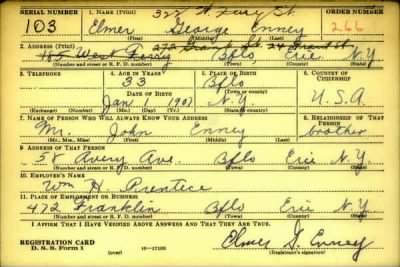 SERIAL NUMBER 1. NAME (Print) ORDER NUMBER
103 Elmer George Enney 266
(First) (Middle) (Last)
2. ADDRESS (Print)
Bflo Erie N.Y.
(Number and street or R. F. D. number) (Town) (County) (State)
3. TELEPHONE 4. AGE IN YEARS 5. PLACE OF BIRTH 6. COUNTRY OF CITIZENSHIP
33 Bflo
DATE OF BIRTH
Jan 1 1907 N.Y. U.S.A.
(Exchange) (Number) (Mo.) (Day) (Yr.) (State or country)
7. NAME OF PERSON WHO WILL ALWAYS KNOW YOUR ADDRESS 8. RELATIONSHIP OF THAT PERSON
Mr. John Enney brother
(Mr., Mrs., Miss) (First) (Middle) (Last)
9. ADDRESS OF THAT PERSON
58 Avery Ave. Bflo Erie N.Y.
(Number and street or R. F. D. number) (Town) (County) (State)
10. EMPLOYER'S NAME
Wm H. Prentice
11. PLACE OF EMPLOYMENT OR BUSINESS
472 Franklin Bflo Erie N.Y.
(Number and street or R. F. D. number) (Town) (County) (State)
I AFFIRM THAT I HAVE VERIFIED ABOVE ANSWERS AND THAT THEY ARE TRUE.
REGISTRATION CARD
D. S. S. Form 1 (over) 16—17105 Elmer G. Enney
(Registrant's signature)